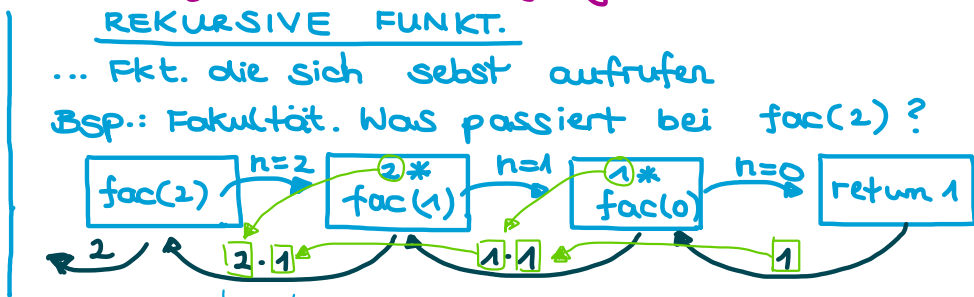 REKURSIVE FUNKT.
... Fkt. die sich sebst aufrufen
Bsp.: Fakultät. Was passiert bei fac(2)?
n=2 2* n=1 1* n=0
fac(2) fac(1) fac(0) return 1
2 2·1 1·1 1